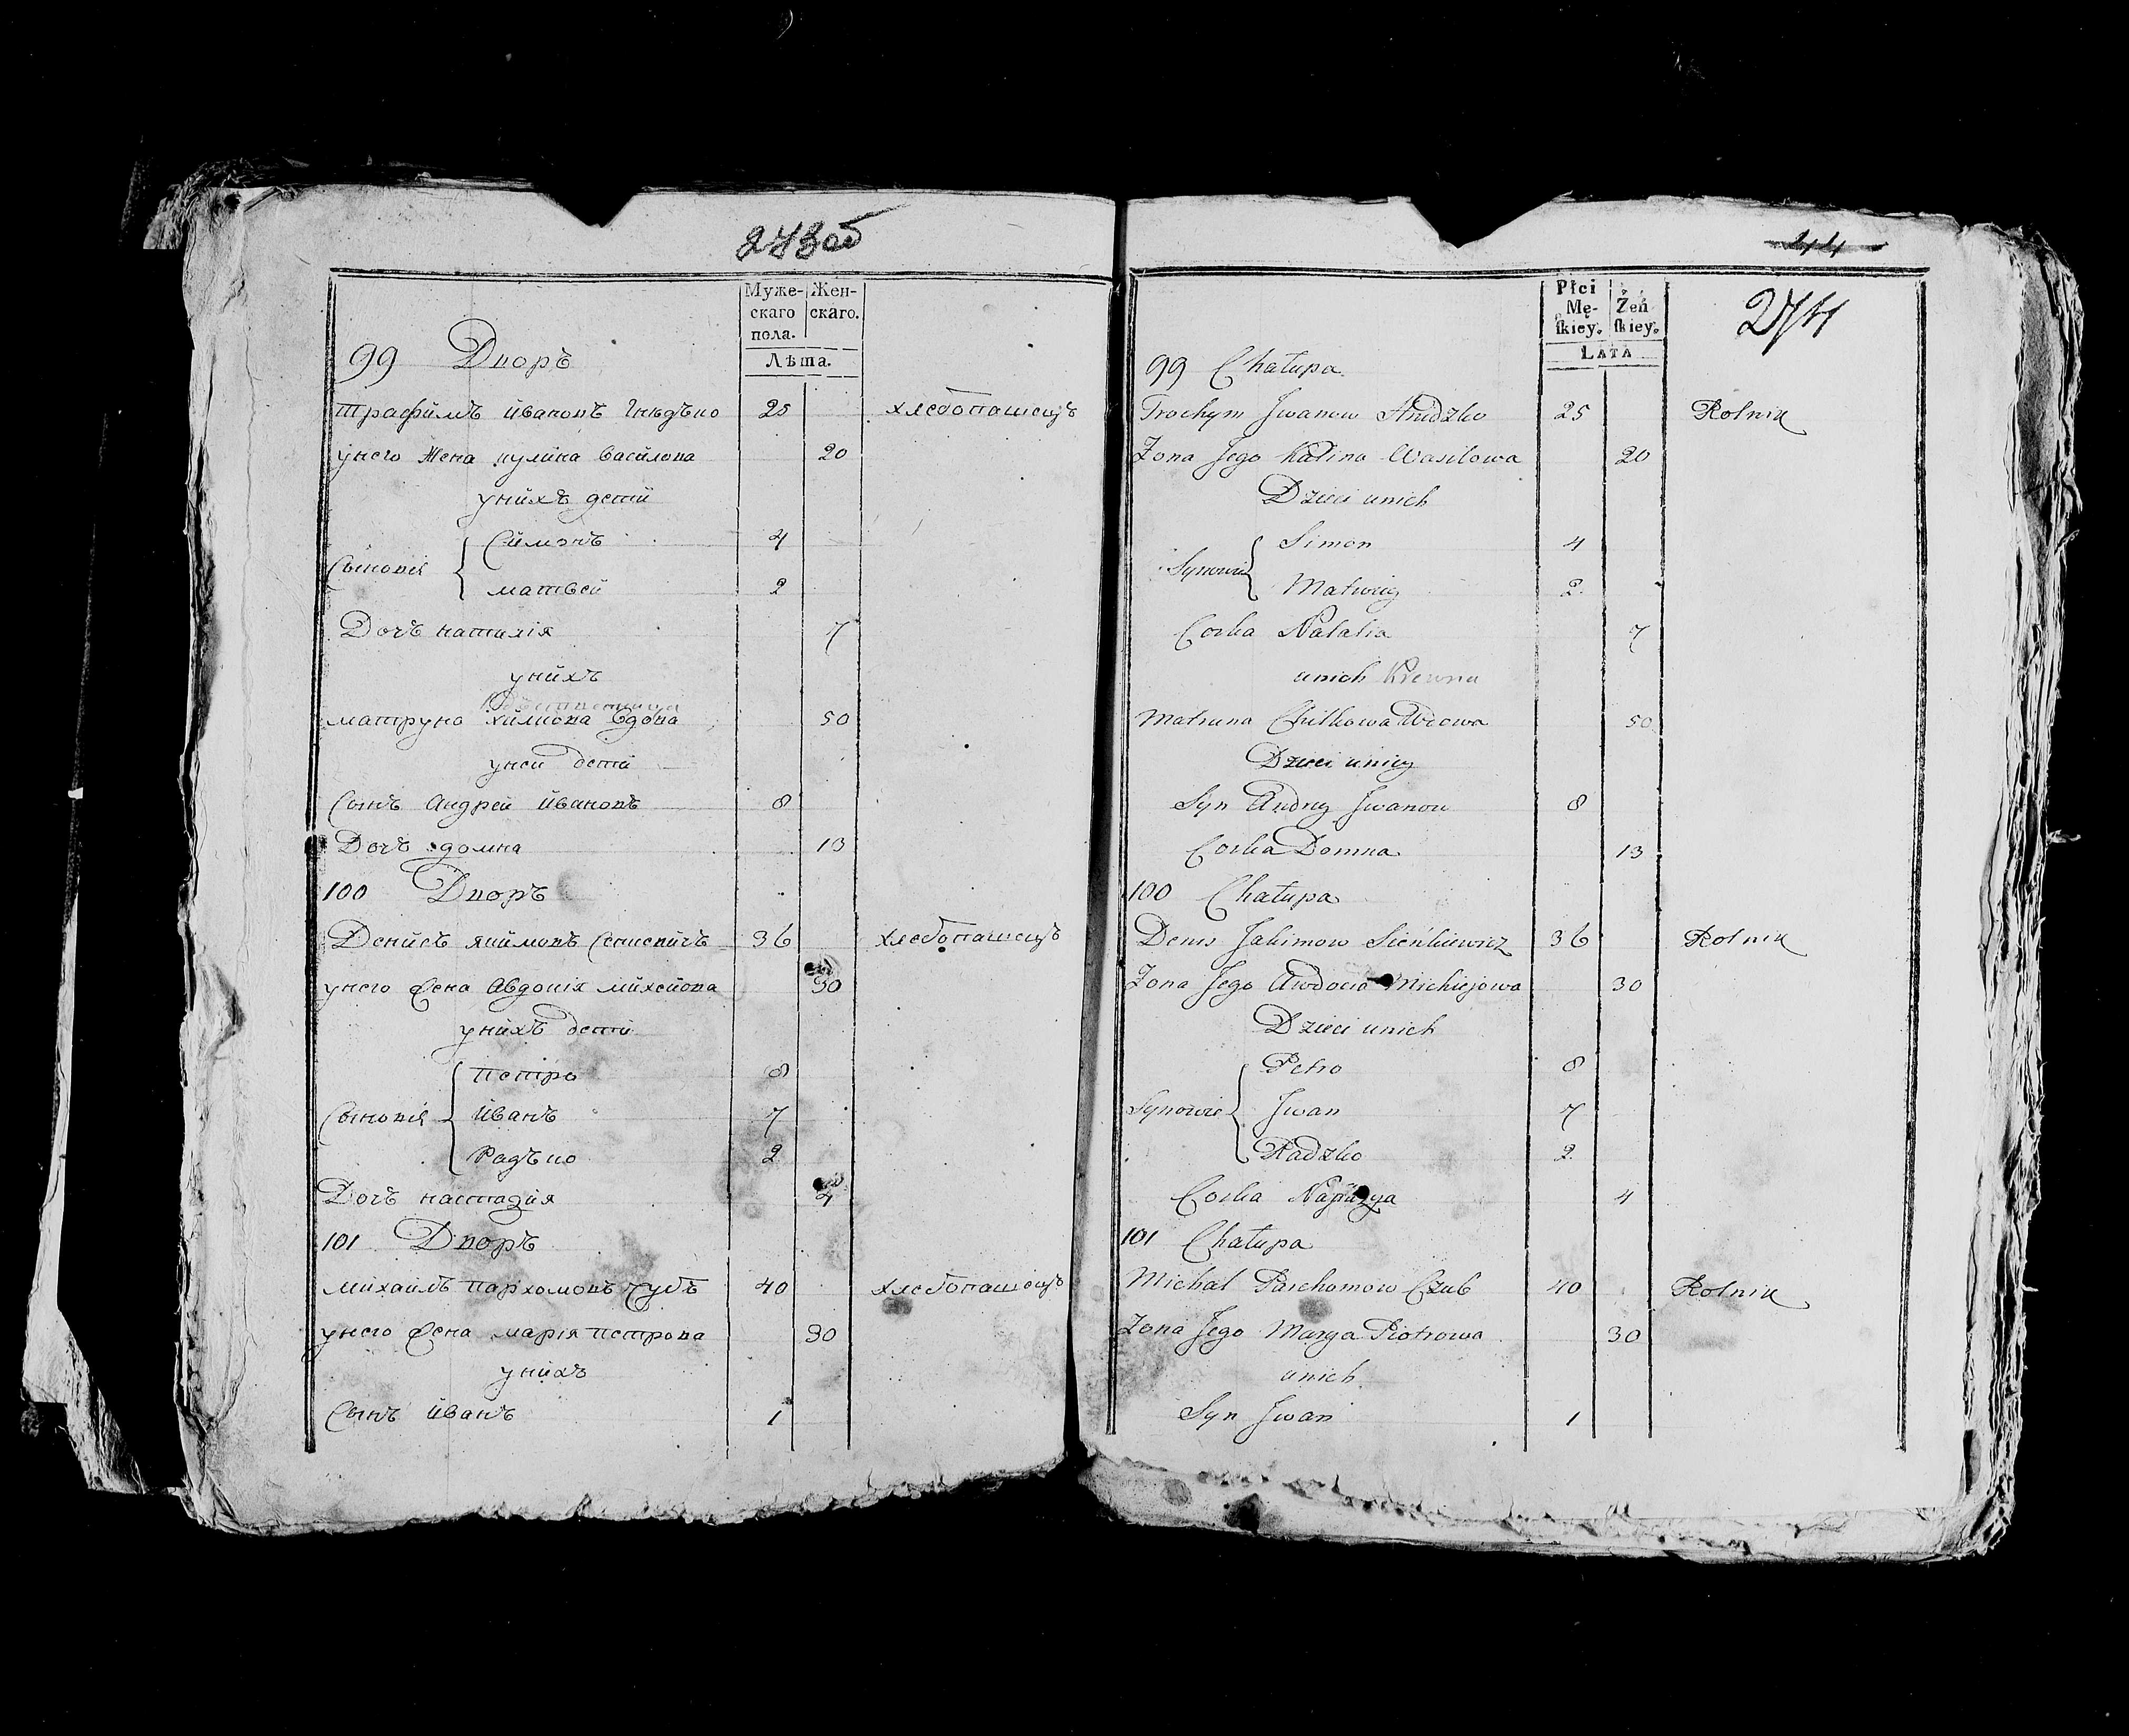 273об
Муже- Жен-
скаго скаго.
пола.
Лѣта.
99 Дворъ
Трафимъ Ивановъ 25 хлебопашецъ
унего Жена кулина Василова 20
унихъ дети
Симонъ 4
Сыновія
матвей 2
Дочъ наталія 7
унихъ
матруна хилкова Вдова 50
уней дети
Сынъ Андрей Ивановъ 8
Дочъ домна 13
100 Дворъ
Денисъ якимовъ Сенкевичъ 36 хлебопашецъ
унего жена Авдокія михейова 30
унихъ дети
Петро 8
Сыновія Иванъ 7
Радъко 2
Дочъ настазия 4
101 Дворъ
михаилъ пархомовъ Чубъ 40 хлебопашецъ
унего жена марія петрова 30
унихъ
Сынъ Иванъ 1
44
274
Płci
Mę- Żeń
skiey. skiey.
LATA
99 Chałupa
Trochym Jwanow 25 Rolnik
Żona Jego Kalina Wasilowa 20
Dzieci unich
Simon 4
Synowie
Matwiey 2
Corka Natalia 7
unich Krewna
Matruna Chilkowa Wdowa 50
Dzieci uniey
Syn Andrey Jwanow 8
Corka Domna 13
100 Chałupa
Denis Jakimow Sieńkiewicz 36 Rolnik
Żona Jego Awdocia Michiejowa 30
Dzieci unich
Petro 8
Synowie Jwan 7
Radzko 2
Corka 4
101 Chałupa
Michał Parchomow Czub 40 Rolnik
Żona Jego Marya Piotrowa 30
unich
Syn Jwan 1